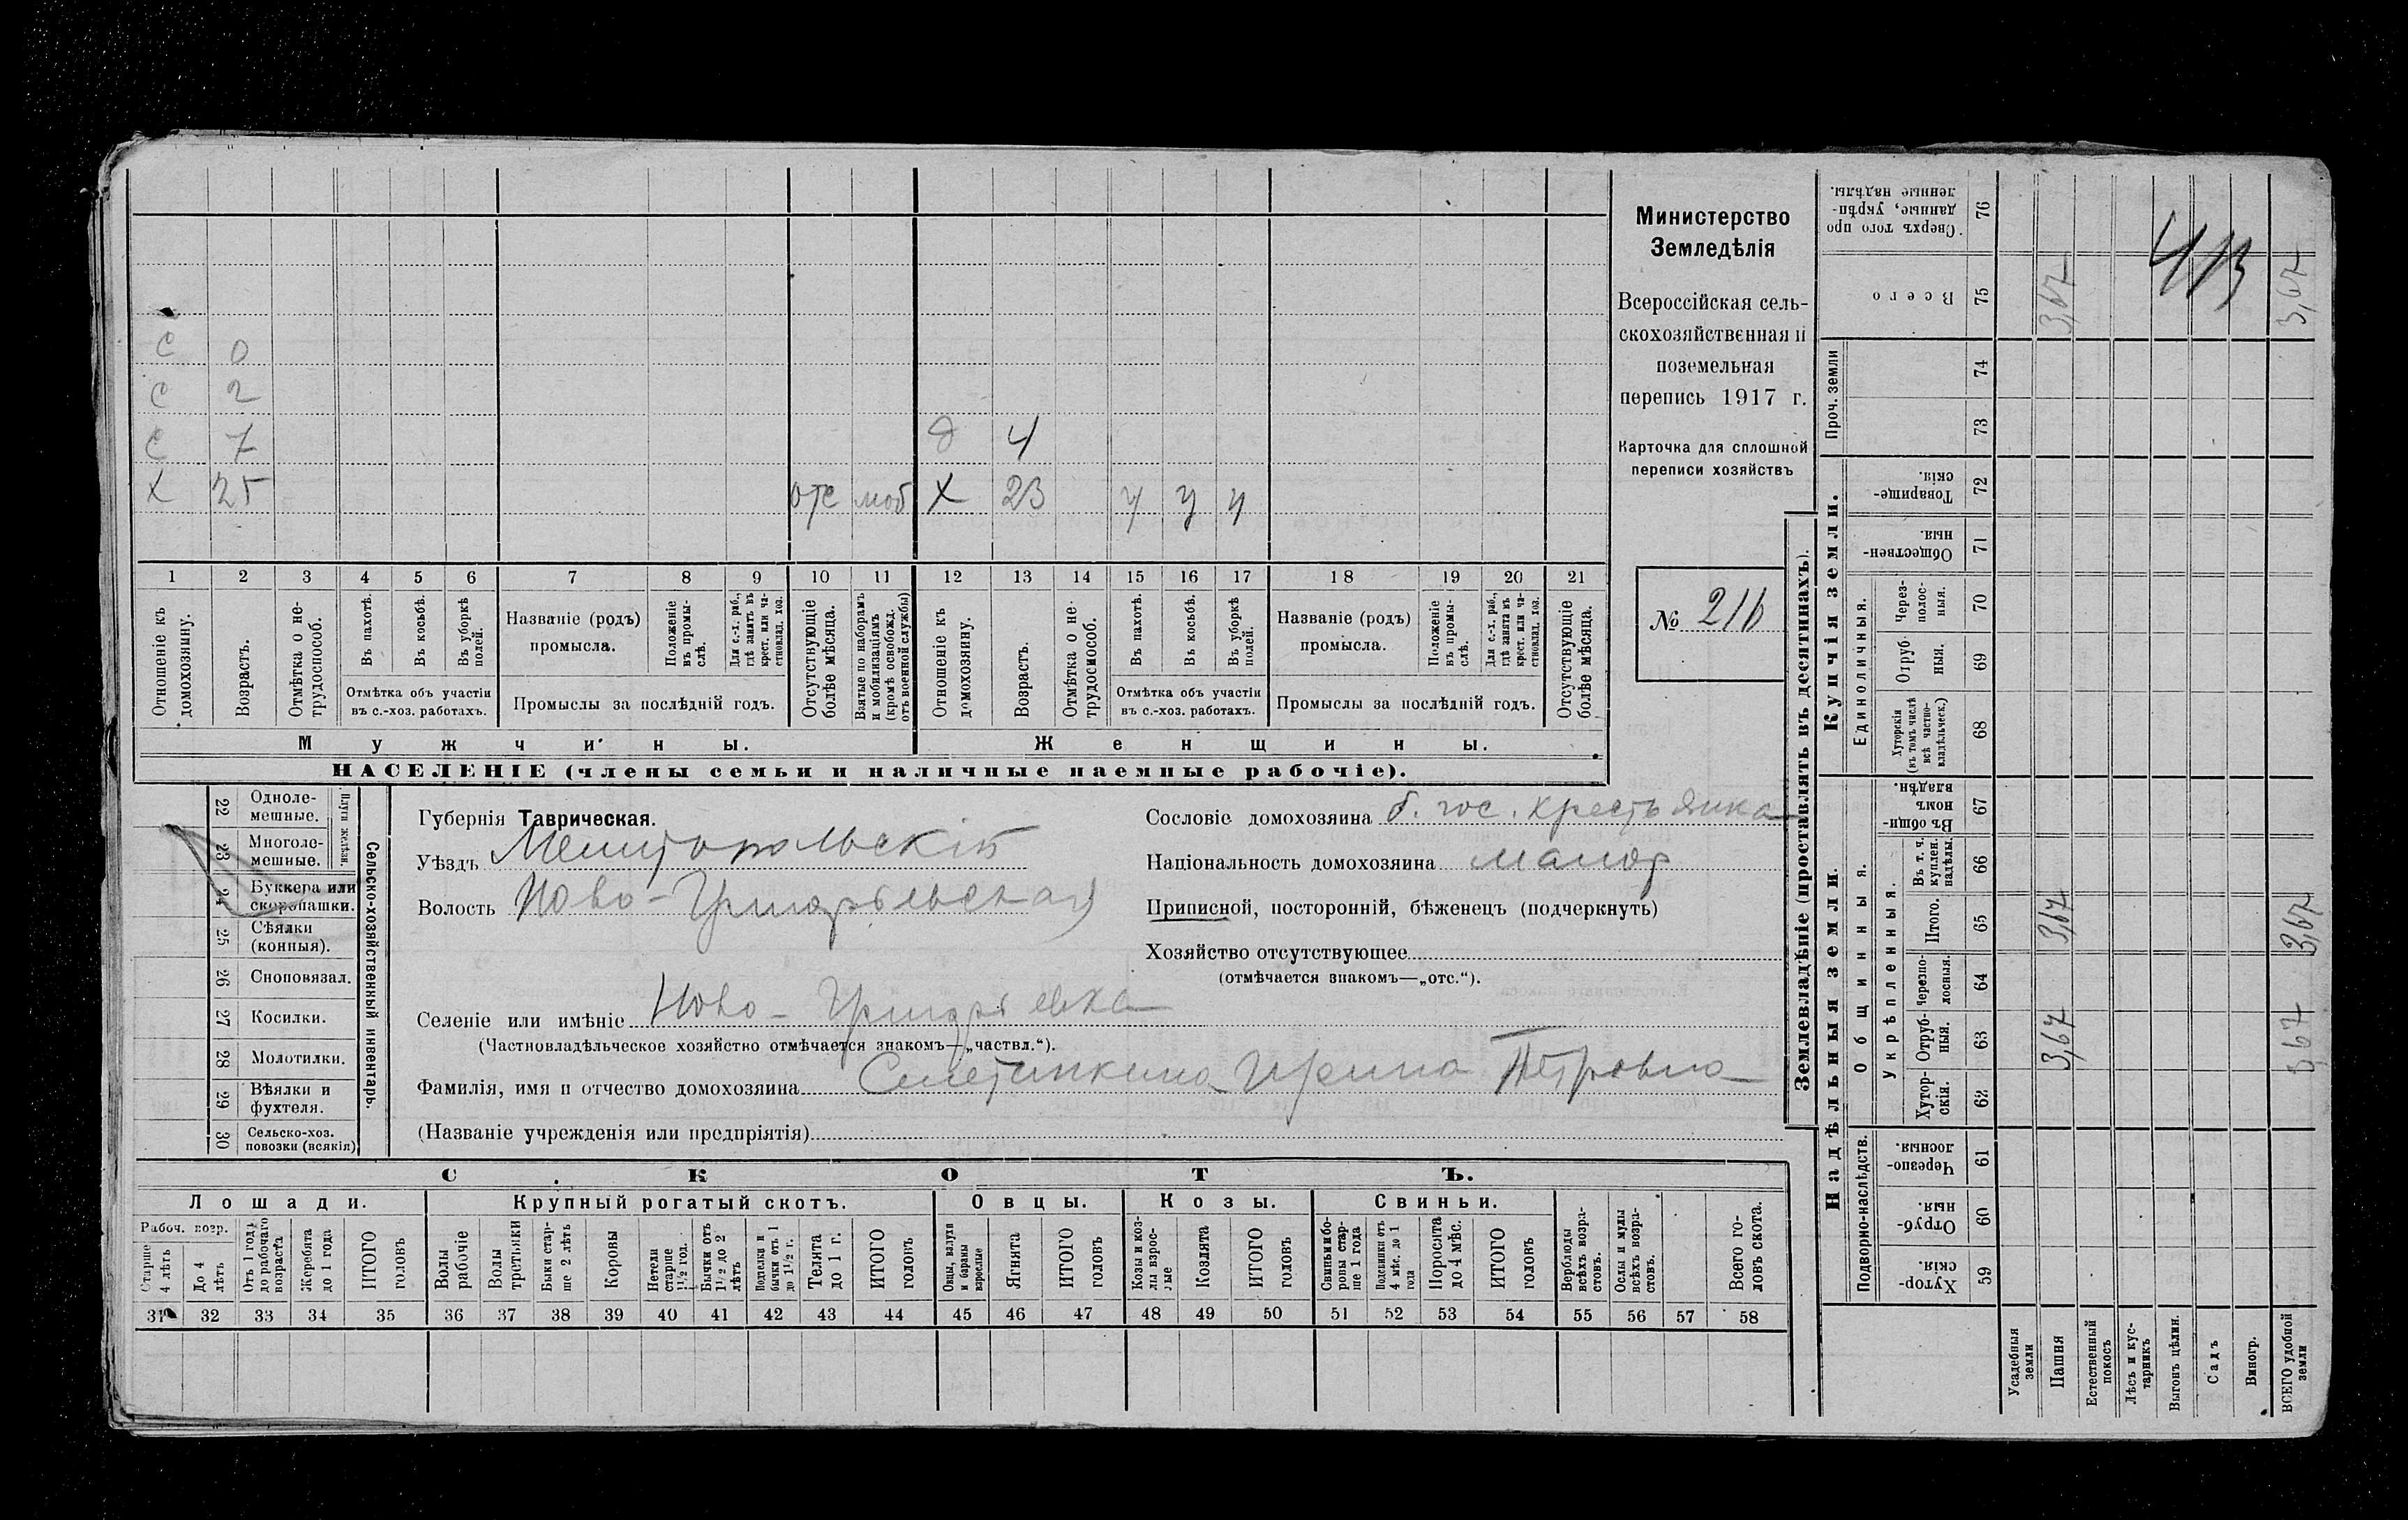 С 0
С 2
С 7 д 4
Х 25 отс моб Х 23 у у у
1 2 3 4 5 6 7 8 9 10 11 12 13 14 15 16 17 18 19 20 21
Отношеніе къ домохозяину.
Возрастъ.
Отмѣтка о не-трудоспособ.
Въ пахотѣ.
Въ косьбѣ.
Въ уборкѣ полей.
Отмѣтка объ участіи
въ с.-хоз. работахъ.
Названіе (родъ)
промысла.
Положеніе въ промы-слѣ.
Для с.-х. раб., гдѣ занятъ въ крест. или ча-стновлад. хоз.
Промыслы за послѣдній годъ.
Отсутствующіе болѣе мѣсяца.
Взятые по наборамъ и мобилизаціямъ (кромѣ освобожд. отъ военной службы)
Отношеніе къ домохозяину.
Возрастъ.
Отмѣтка о не-трудоспособ.
Въ пахотѣ.
Въ косьбѣ.
Въ уборкѣ полей.
Отмѣтка объ участіи
въ с.-хоз. работахъ.
Названіе (родъ)
промысла.
Положеніе въ промы-слѣ.
Для с.-х. раб., гдѣ занята въ крест. или ча-стновлад. хоз.
Промыслы за послѣдній годъ.
Отсутствующіе болѣе мѣсяца.
Мужчины. Женщины.
НАСЕЛЕНІЕ (члены семьи и наличные наемные рабочіе).
Министерство
Земледѣлія
Всероссійская сель-
скохозяйственная и
поземельная
перепись 1917 г.
Карточка для сплошной
переписи хозяйствъ
№ 216
Сельско-хозяйственный инвентарь.
Плуги желѣзн.
22 Одноле-
мешные.
23 Многоле-
мешные.
24 Буккера или
скоропашки.
25 Сѣялки
(конныя).
26 Сноповязал.
27 Косилки.
28 Молотилки.
29 Вѣялки и
фухтеля.
30 Сельско-хоз.
повозки (всякія)
Губернія Таврическая.
Уѣздъ Мелитопольскій
Волость Ново-Григорьевская
Селеніе или имѣніе Ново-Григорьевка
(Частновладѣльческое хозяйство отмѣчается знакомъ—„частвл.“).
Фамилія, имя и отчество домохозяина Ирина Петровна
(Названіе учрежденія или предпріятія)
Сословіе домохозяина б. гос. крестьянка
Національность домохозяина малор
Приписной, посторонній, бѣженецъ (подчеркнуть)
Хозяйство отсутствующее
(отмѣчается знакомъ—„отс.“).
СКОТЪ.
Лошади. Крупный рогатый скотъ. Овцы. Козы. Свиньи.
Рабоч. возр.
Старше 4 лѣтъ
До 4 лѣтъ
Отъ 1 год. до рабочаго возраста
Жеребята до 1 года
ИТОГО головъ
Волы рабочіе
Волы третьяки
Быки стар-ше 2 лѣтъ
Коровы
Нетели старше 1½ год.
Бычки отъ 1½ до 2 лѣтъ
Подтелки и бычки отъ 1 до 1½ г.
Телята до 1 г.
ИТОГО головъ
Овцы, валухи и бараны взрослые
Ягнята
ИТОГО головъ
Козы и коз-лы взрос-лые
Козлята
ИТОГО головъ
Свиньи и бо-ровы стар-ше 1 года
Подсвинки отъ 4 мѣс. до 1 года
Поросята до 4 мѣс.
ИТОГО головъ
Верблюды всѣхъ возра-стовъ.
Ослы и мулы всѣхъ возра-стовъ.
Всего го-ловъ скота.
31 32 33 34 35 36 37 38 39 40 41 42 43 44 45 46 47 48 49 50 51 52 53 54 55 56 57 58
Землевладѣніе (проставлять въ десятинахъ).
Надѣльныя земли.
Подворно-наслѣдств.
Хутор-скія. 59
Отруб-ныя. 60
Черезпо-лосныя. 61
Общинныя.
Укрѣпленныя.
Хутор-скія. 62
Отруб-ныя. 63 3,67 3,67
Черезпо-лосныя. 64
Итого. 65 3,67 3,67
Въ т. ч. куплен. надѣлы. 66
Въ общи-номъ владѣн. 67
Купчія земли.
Единоличныя.
Хуторскія (въ томъ числѣ всѣ частно-владѣльческ.) 68
Отруб-ныя. 69
Через-полос-ныя. 70
Обществен-ныя. 71
Товарище-скія. 72
Проч. земли
73
74
Всего 75 3,67 3,67
Сверхъ того про-данные, укрѣп-ленные надѣлы. 76
Усадебныя земли
Пашня
Естественный покосъ
Лѣсъ и кус-тарникъ
Выгонъ цѣлин.
Садъ
Виногр.
ВСЕГО удобной земли